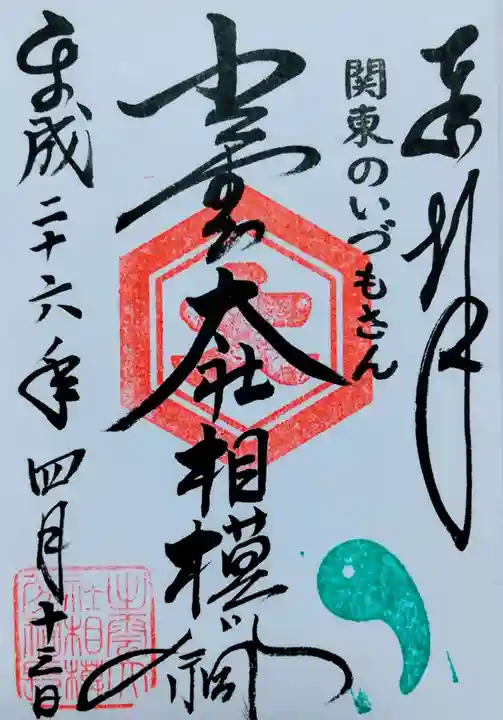 奉拝
関東のいづもさん
出雲大社相模分祠
平成二十六年四月十三日